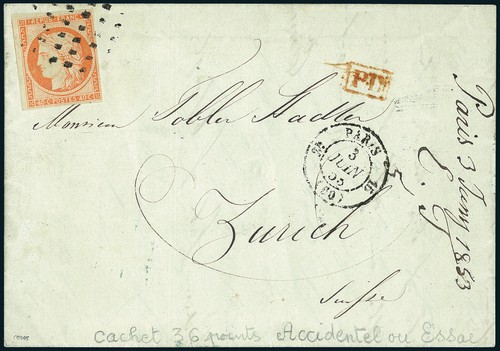 REPUB. FRANC.
40 C. POSTES 40 C.
PD
Monsieur Tobler Stadler
PARIS
3
JUIN
53
(60)
Zurich
Suisse
Paris 3 Juny 1853
cachet 36 points Accidentel ou Essai